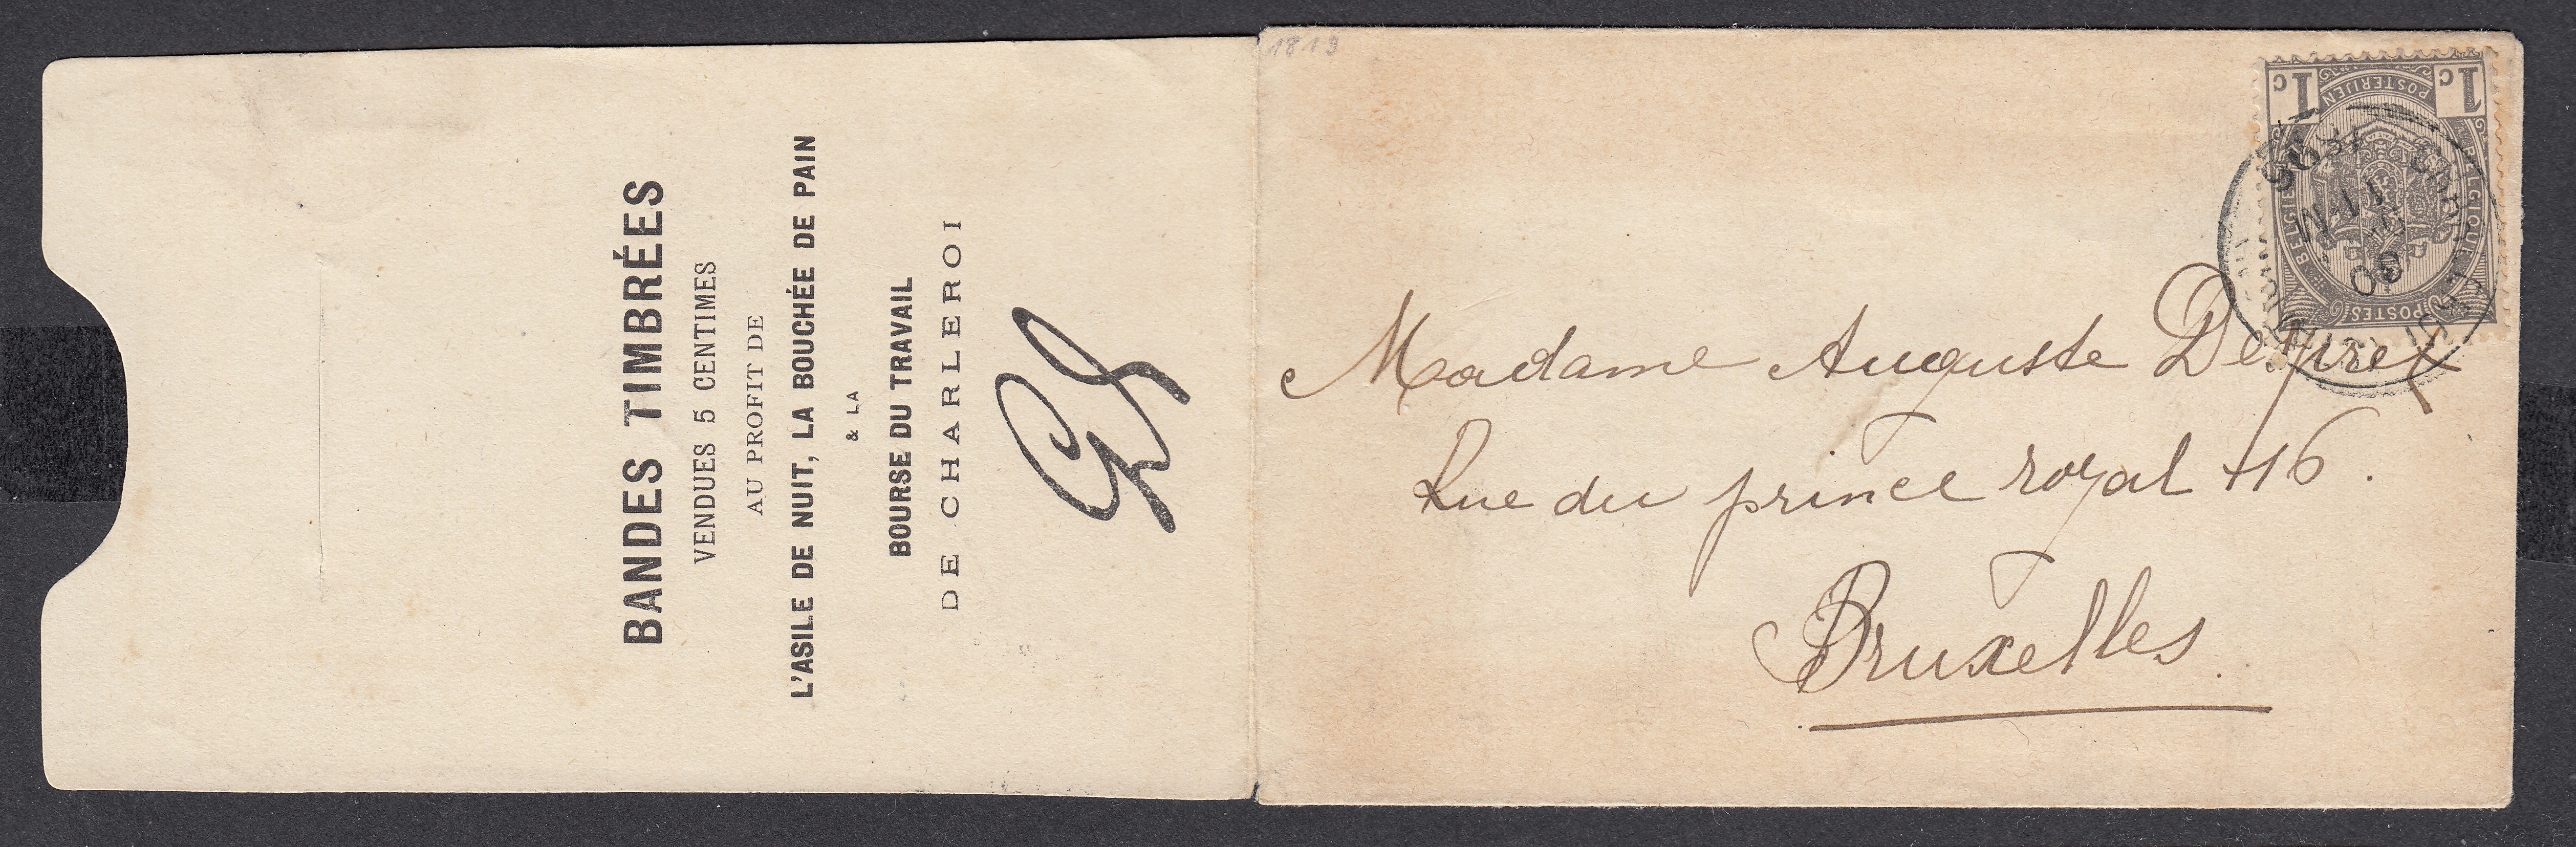 BANDES TIMBRÉES
VENDUES 5 CENTIMES
AU PROFIT DE
L'ASILE DE NUIT, LA BOUCHÉE DE PAIN
& LA
BOURSE DU TRAVAIL
DE CHARLEROI
1819
1c POSTERIJEN 1c
BELGIË BELGIQUE
POSTES
Madame Auguste Despret
Rue du prince royal 116.
Bruxelles